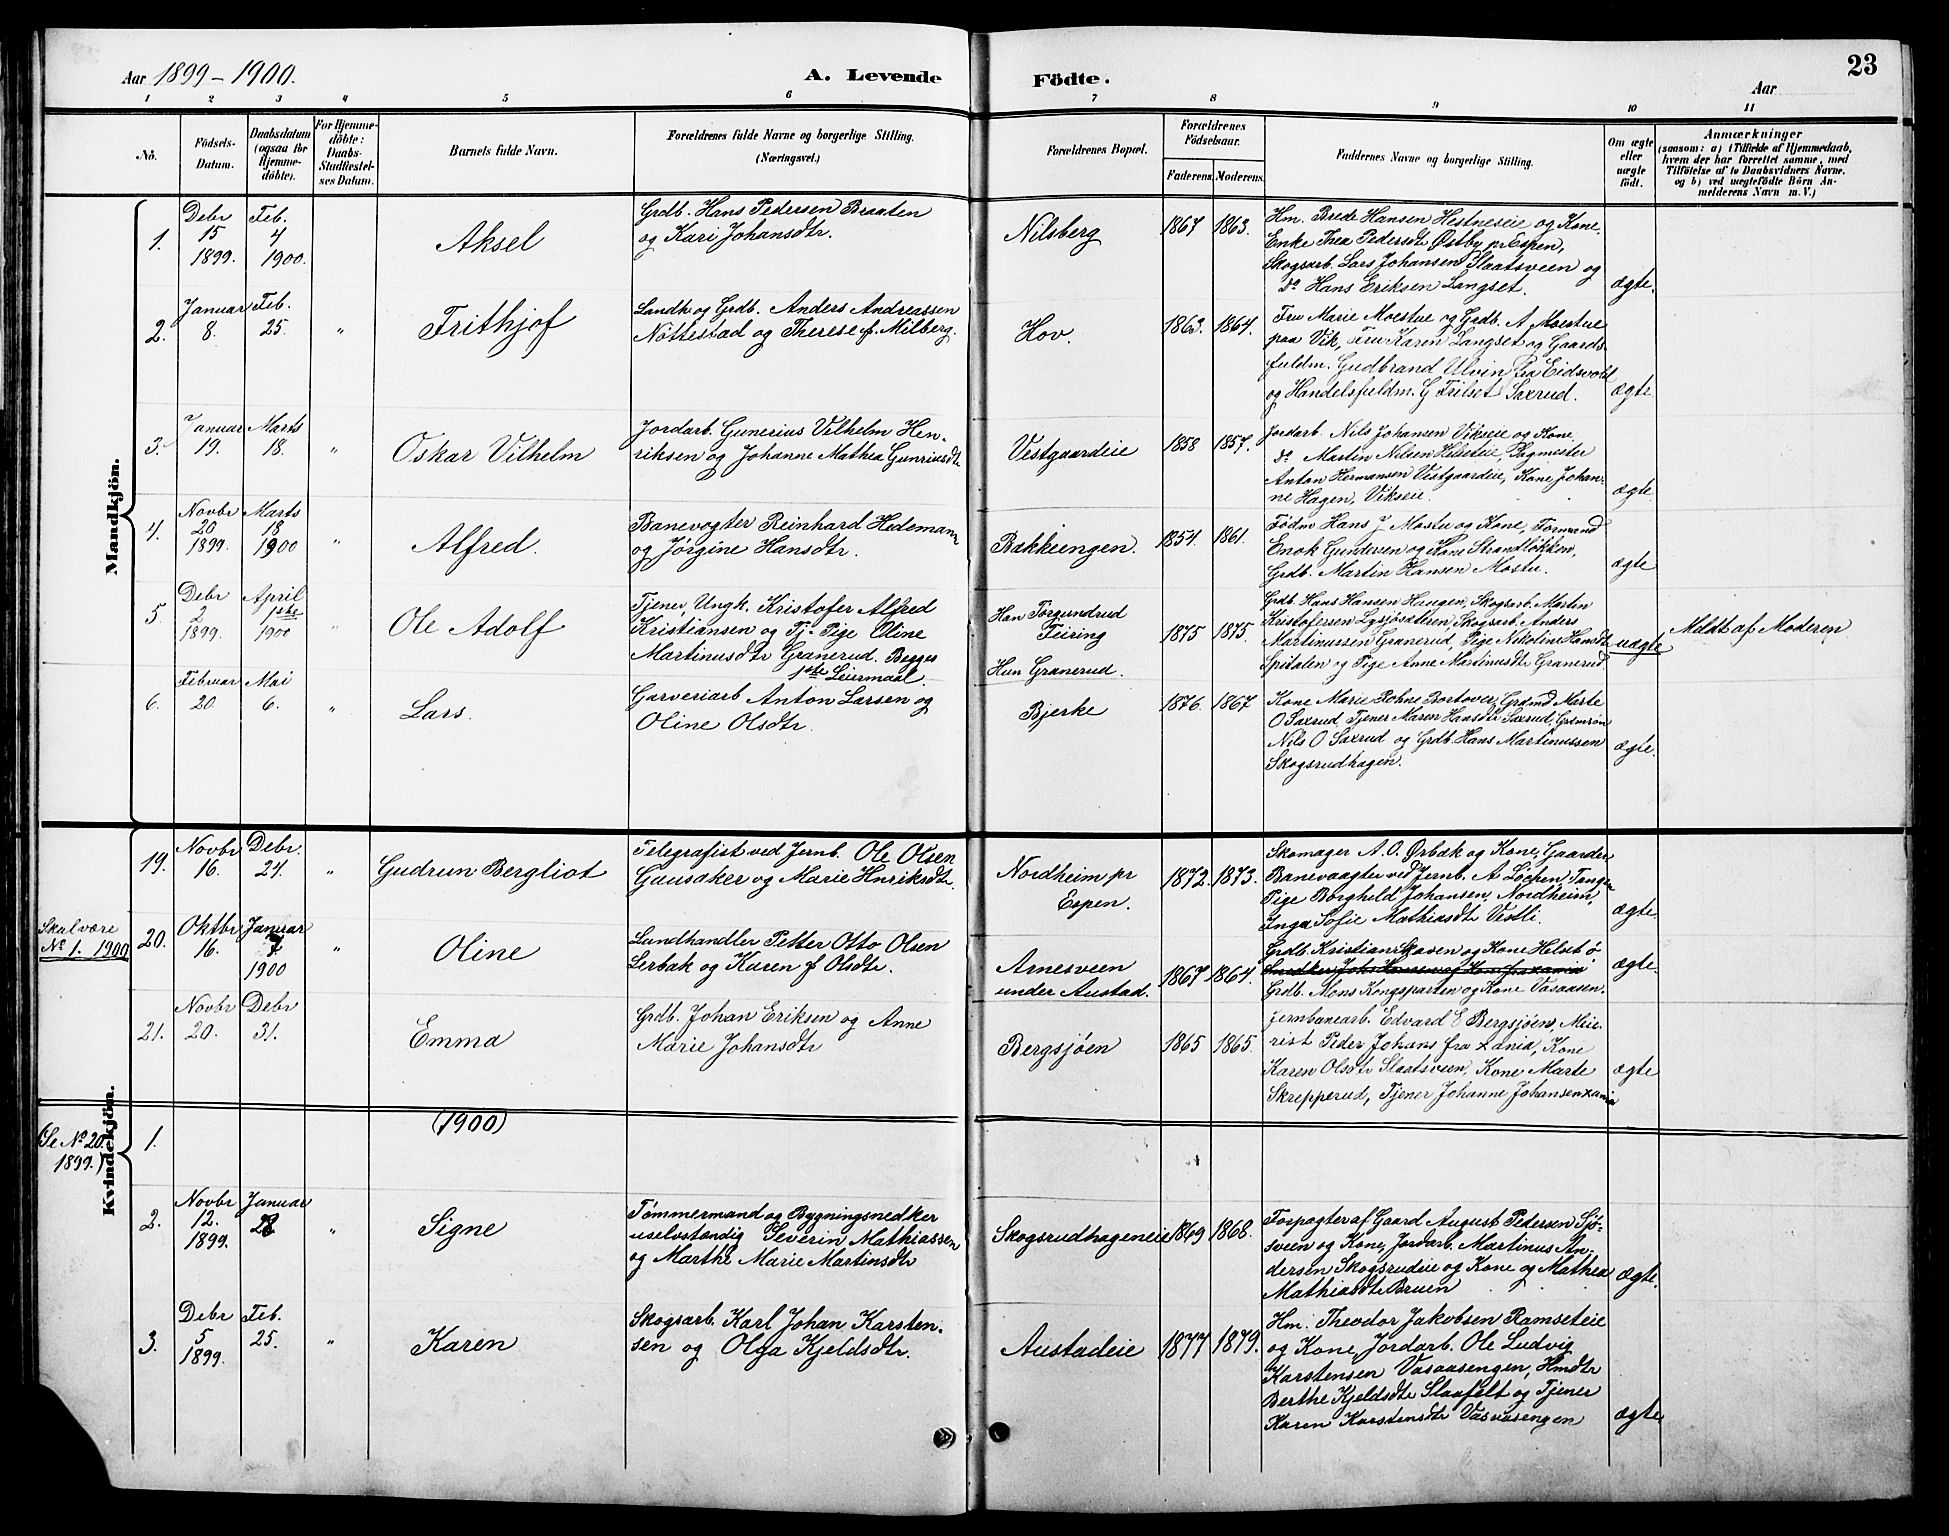 Aar 1899 – 1900.
A. Levende
Födte.
Aar
23
1 2 3 4 5 6 7 8 9 10 11
No.
Födsels-
Datum.
Daabsdatum
(ogsaa for
Hjemme-
döbte).
For Hjemme-
döbte:
Daabs-
Stadfæstel-
ses Datum.
Barnets fulde Navn.
Forældrenes fulde Navne og borgerlige Stilling.
(Næringsvei.)
Forældrenes Bopæl.
Forældrenes
Födselsaar.
Faderens.
Moderens.
Faddernes Navne og borgerlige Stilling.
Om ægte
eller
uægte
födt.
Anmærkninger
(saasom: a) i Tilfælde af Hjemmedaab,
hvem der har forrettet samme, med
Tilföielse af to Daabsvidners Navne,
og b) ved uægtefödte Börn An-
melderens Navn m. V.)
Mandkjön.
1.
Debr
15
1899.
Feb.
4
1900.
Aksel
Grdb. Hans Pedersen Braaten
og Kari Johansdtr.
Nilsberg
1867
1863.
Hm. Brede Hansen Hestneseie og Kone,
Enke Thea Pedersdtr Østby pr Espen,
Skogsarb. Lars Johansen Slaatsveen og
do Hans Eriksen Langset.
ægte.
2.
Januar
8.
Feb.
25.
"
Frithjof
Landh og Grdb. Anders Andreassen
Nøttestad og Therese f. Milberg.
Hov.
1863.
1864.
Fru Marie Moestue og Grdb. A Moestue
paa Vik, Fru Karen Langset og Gaards-
fuldm. Gudbrand Ulvin fra Eidsvold
og Handelsfuldm. G Frilset Saxrud.
ægte
3.
Januar
19.
Marts
18.
"
Oskar Vilhelm
Jordarb. Gunerius Vilhelm Hen-
riksen og Johanne Mathea Gunriusdtr
Vestgaardeie
1858
1857.
Jordarb. Nils Johansen Vikseie og Kone,
do Martin Nilsen Helseteie, Bagmester
Anton Hermansen Vestgaardeie, Kone Johan-
ne Hagen, Vikseie.
ægte
4.
Novbr
20
1899.
Marts
18
1900
"
Alfred.
Banevogter Reinhard Hedemann
og Jørgine Hansdtr.
Bakkeengen.
1854.
1861.
Fødm Hans J Mostu og Kone, Formand
Enok Gundersen og Kone Strandløkken,
Grdb. Martin Hansen Mostu.
ægte
5
Debr
2
1899.
April
1ste
1900
"
Ole Adolf
Tjener, Ungk. Kristofer Alfred
Kristiansen og Tj. Pige Oline
Martinusdtr Granerud. Begges
1ste Leiermaal.
Han Torgundrud
Feiring
Hun Granerud.
1875
1875.
Grdb. Hans Hansen Haugen, Skogsarb. Martin
Kristofersen Lysjøsæteren, Skogsarb. Anders
Martinussen Granerud, Pige Nikoline Hansdtr
Spitalen og Pige Anne Martinusdtr Granerud
uægte
Meldt af Moderen
6.
Februar
20.
Mai
6.
"
Lars.
Garveriarb Anton Larsen og
Oline Olsdtr.
Bjerke
1876.
1867
Kone Marie Bortover, Grdmd Marte
O Saxrud, Tjener Maren Hansdtr Saxrud, Grdmsøn
Nils O Saxrud og Grdb. Hans Martinussen
Skogsrudhagen.
ægte.
Kvindekjön.
19.
Novbr
16.
Debr.
24.
"
Gudrun Bergliot
Telegrafist ved Jernb. Ole Olsen
Gausaker og Marie Hnriksdtr.
Nordheim pr
Espen.
1872.
1873.
Skomager A. O. Ørbæk og Kone, Gaarder
Banevaagter ved Jernb. A Løchen, Tangen
Pige Borghild Johansen, Nordheim,
Inga Sofie Mathiasdtr Vestli.
ægte.
Skal være
No 1. 1900
20.
Oktbr
16.
Januar
7
1900
"
Oline
Landhandler Petter Otto Olsen
Lerbak og Karen f Olsdtr.
Arnesveen
under Austad.
1867
1864.
Grdb. Kristian Skaven og Kone Helsetø
Grdb. Mons Kongsparten og Kone Vasaasen.
ægte.
21.
Novbr
20.
Debr
31.
Emma
Grdb. Johan Eriksen og Anne
Marie Johansdtr
Bergsjøen
1865
1865.
Jernbanearb. Edvard E Bergsjøen, Meie-
rist Peder Johans fra Xania, Kone
Karen Olsdtr Slaatsveen, Kone Marte
Skrepperud, Tjener Johanne Johansen Xania
ægte
(1900)
(Se No 20.
1899.)
1.
2.
Novbr
12.
1899.
Januar
28
"
Signe
Tømmermand og Bygningsnedker
uselvstændig Severin Mathiassen
og Marthe Marie Martinsdtr
Skogsrudhageneie
1869
1868.
Forpagter af Gaard August Petersen Sjø-
sveen og Kone, Jordarb. Martinus An-
dersen Skogsrudeie og Kone og Mathea
Mathiasdtr Bruen
ægte.
3.
Debr
5
1899.
Feb.
25.
"
Karen
Skogsarb. Karl Johan Karsten-
sen og Olga Kjeldsdtr.
Austadeie
1877
1879.
Hm. Theodor Jakobsen Ramseteie
og Kone, Jordarb. Ole Ludvig
Karstensen Vasaasengen, Hmdtr
Berthe Kjeldsdtr Slaafelt og Tjener
Karen Karstensdtr Vasaasengen
ægte